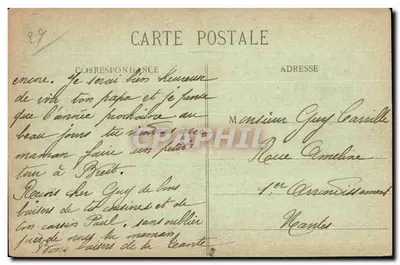 29
CARTE POSTALE
CORRESPONDANCE
ADRESSE
encore. Je serai bien heureuse
de voir ton papa et je pense
que l'année prochaine au
beau jours tu
maman faire un petit
tour à Brest.
Reçois cher Guy de bons
baisers de tes cousines et de
ton cousin Paul. sans oublier
maman
bons baisers de la tante
Monsieur Guy
Rue Ameline
1er Arrondissement
Nantes
CPAPHIL